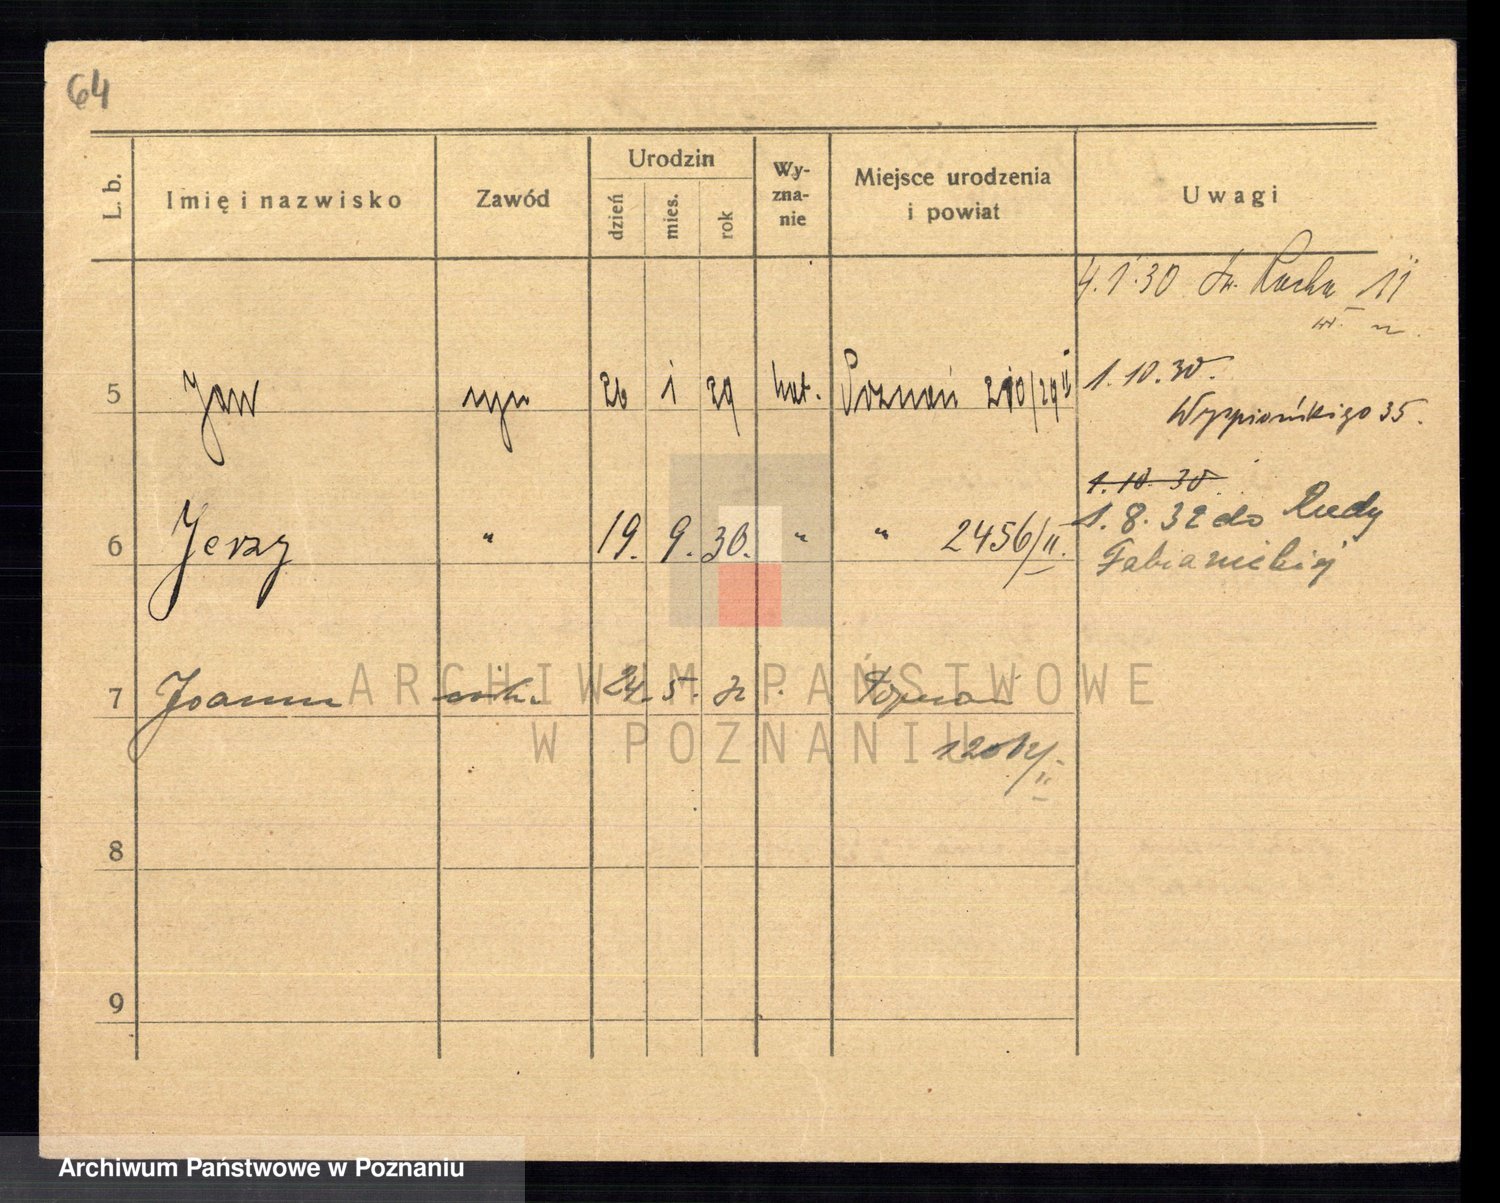 64
L. b.
Imię i nazwisko
Zawód
Urodzin
dzień
mies.
rok
Wy-
zna-
nie
Miejsce urodzenia
i powiat
Uwagi
4.1.30 Św. Rocha 11
5 Jan syn 26 1 29 kat. Poznań 210/29 II
1.10.30.
Wyspiańskiego 35.
1.10.30
6 Jerzy " 19. 9. 30. " " 2456/II.
1.8.32 do Rudy
Fabianickiej
7 Joanna 24. 5. Poznań
II
8
9
ARCHIWUM PAŃSTWOWE
W POZNANIU
Archiwum Państwowe w Poznaniu